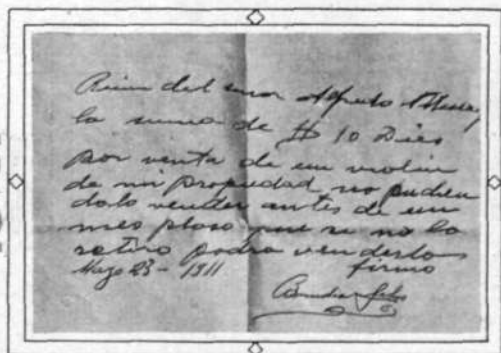 del señor Alfredo
la suma de $ 10 Dies
por venta de un violin
de mi propiedad no pudien
dolo vender antes de un
mes plaso que si no lo
retiro podra venderlo
Mayo 23 - 1911 firmo